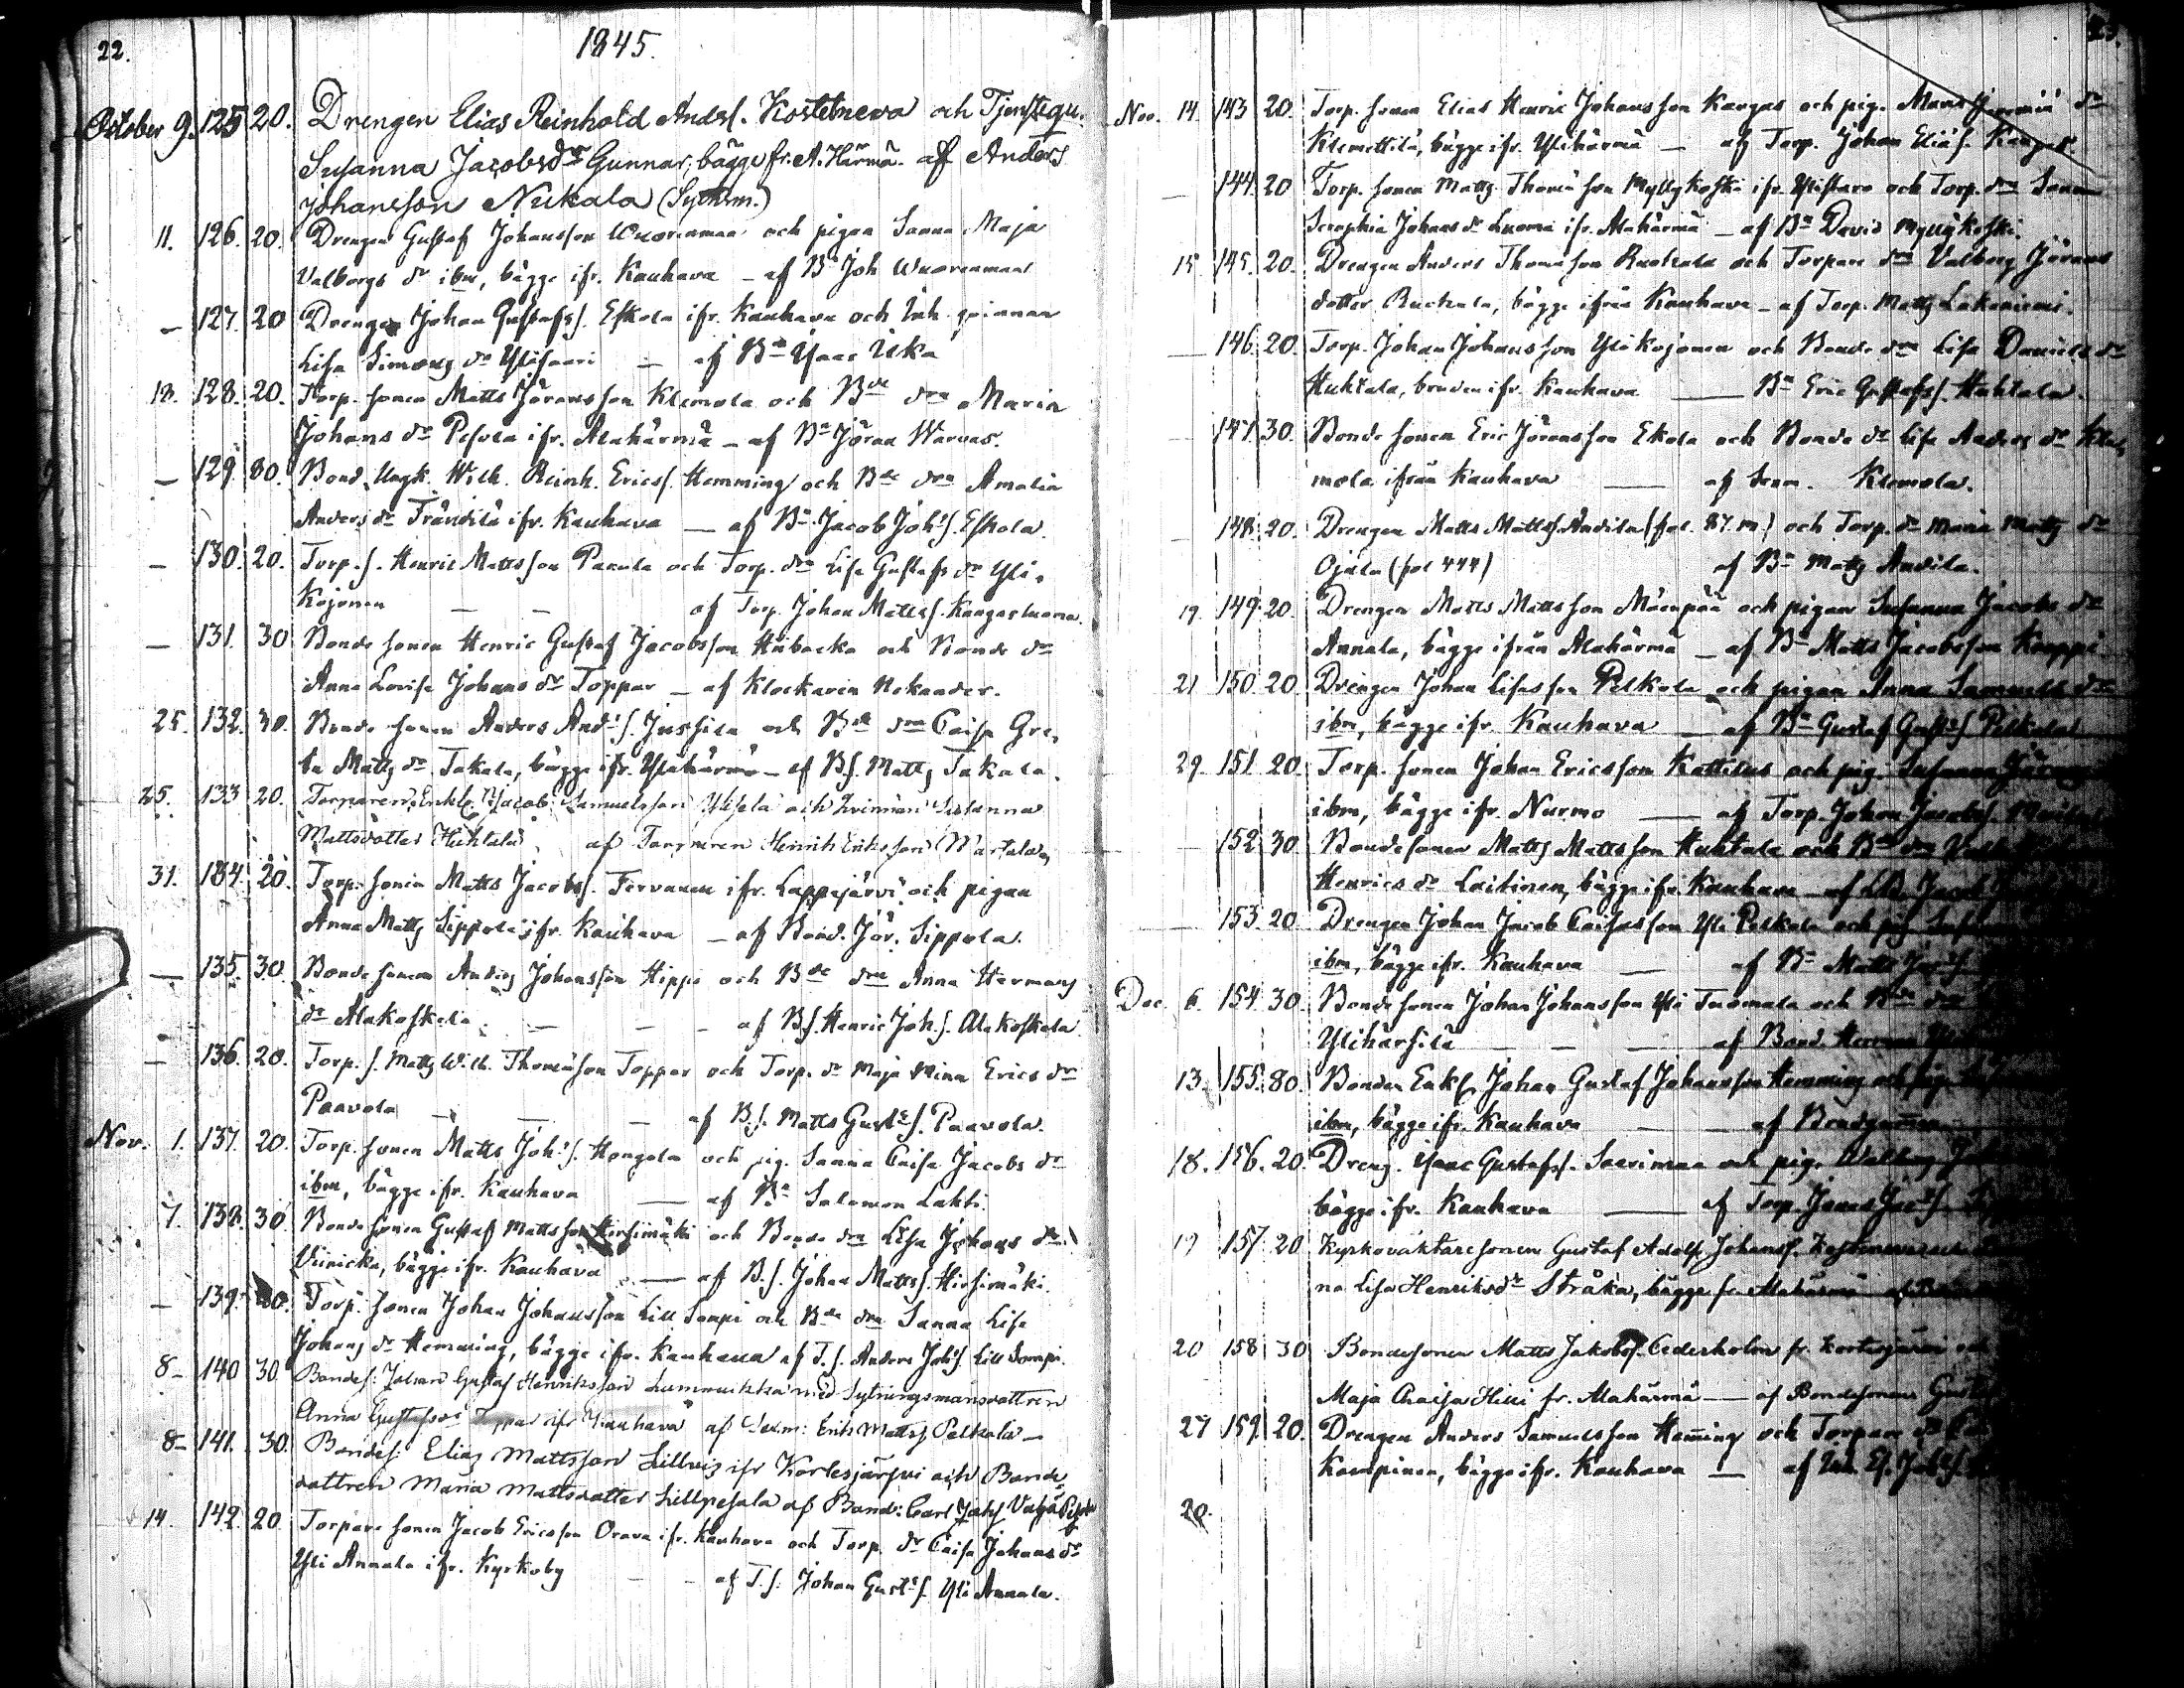 22.
1845.
October 9. 125 20. Drengen Elias Reinhold Andsf. Kosteneva och Tjenstequ.
Susanna Jacobsdr Gunnar, bägge fr. A. Härmä. af Anders
Johansson Nukala (Sytnm.)
11. 126. 20. Drengen Gustaf Johansson Wuorenmaa och pigan Sanna Maja
Valborgs dr ibm, bägge ifr. Kauhava – af Bn Joh Wuorenmaa
– 127. 20 Drengen Johan Gustafs f. Eskola ifr. Kauhava och Inh. qvinnan
Lisa Simons dr Ylisaari – af Bn Isaac Uka
18. 128. 20. Torp. sonen Matts Jöransson Klemola och Bde drn Maria
Johans dr Pesola ifr. Alahärmä – af Bn Jöran Warvas.
– 129. 80. Bond. Ungk. Wilh. Reinh. Ericsf. Hemming och Bde drn Amalia
Anders dr Frändilä ifr. Kauhava – af Bn Jacob Johsf. Eskola.
– 130. 20. Torp. s. Henric Mattsson Panula och Torp. drn Lisa Gustafs dr Yli-
Kojonen – – af Torp. Johan Mattsf. Kangasluoma.
– 131. 30 Bonde sonen Henric Gustaf Jacobsson Hubacka och Bonde dr
Anna Lovisa Johans dr Toppar – af Klockaren Nekander.
25. 132. 30. Bonde sonen Anders Andsf. Jussila och Bde drn Caisa Gre-
ta Matts dr Takala, bägge ifr. Ylihärmä – af Bf. Matts Takala.
25. 133 20. Torparen, Enkl. Jacob Samuelsson Ylisela och Qvinnan Susanna
Mattsdotter Huhtala af Torparen Henrik Eriksson Martala
31. 134. 20. Torp. sonen Matts Jacobsf. Fervanen ifr. Lappejärvi och pigan
Anna Matts Sippola ifr. Kauhava – af Bond. Jör. Sippola.
– 135. 30. Bonde sonen Anders Johansson Hippi och Bde drn Anna Hermans
dr Alakoskela – – – af Bf. Henric Joh.f. Alakoskela
– 136. 20. Torp. s. Matts Wilh. Thomasson Toppar och Torp. dr Maja Mina Erics dr
Paavola – – – af B.f. Matts Gustsf. Paavola.
Nov. 1. 137. 20. Torp. sonen Matts Johsf. Hongola och pig. Sanna Caisa Jacobs dr
ibm, bägge ifr. Kauhava — af Bn Salomon Lahti.
7. 138. 30. Bonde sonen Gustaf Mattsson Hirsimäki och Bonde drn Lisa Johans dr
Viinicka, bägge ifr. Kauhava — af B.f. Johan Mattsf. Hirsimäki.
– 139. 30. Torp. sonen Johan Johansson Lill Sompi och Bde drn Sanna Lisa
Johans dr Hemming, bägge ifr. Kauhava af T.f. Anders Johsf. Lill Sompi.
8 – 140 30. Bondes: Johan Gustaf Henriksson Lummukka med Sytningsmansdottren
Anna Gustafsdr Toppar ifr Kauhava af Sexm: Erik Mattsf Pelkola –
8 – 141. 30. Bondes. Elias Mattsson Lillvis ifr Kortesjärvi och Bonde
dottren Maria Mattsdotter Lillpesola af Bond: Carl Johsf
14. 142. 20 Torpare sonen Jacob Ericsson Orava ifr. Kauhava och Torp. dr Caisa Johans dr
Yli Annala ifr. Kyrkoby – – af T.f. Johan Gustsf. Yli Annala.
Nov. 14. 143 20. Torp. sonen Elias Henric Johansson Kangas och pig. Maria dr
Klemettilä, bägge ifr. Ylihärmä — af Torp. Johan Eliasf. Kangas.
– 144. 20 Torp. sonen Matts Thomasson Myllykoski ifr. Ylistaro och Torp. drn Sanna
Seraphia Johans dr Luoma ifr. Alahärmä – af Bn David Myllykoski.
15 145. 20. Drengen Anders Thomasson Ruokala och Torpare drn Valborg Jörans
dotter Ruokala, bägge ifrån Kauhava – af Torp. Matts Lakaniemi.
– 146. 20. Torp. Johan Johansson Ylikojonen och Bonde drn Lisa Daniels dr
Huhtala, bruden ifr. Kauhava — Bn Eric Gustafsf. Huhtala.
– 147. 30. Bonde sonen Eric Jöransson Ekola och Bonde dr Lisa Anders dr Kle-
mola ifrån Kauhava — af Klemola.
– 148. 20. Drengen Matts Mattsf. Andila (fol. 87. m) och Torp. dr Maria Matts dr
Ojala (fol 444) af Bn Matts Andila.
19. 149. 20. Drengen Matts Mattsson Mäenpää och pigan Susanna Jacobs dr
Annala, bägge ifrån Alahärmä – af Bn Matts Jacobsson Kauppi
21 150 20. Drengen Johan Lisasson Pelkola och pigan Anna Samuels dr
ibm, bägge ifr. Kauhava – af Bn Gustaf Gustsf. Pelkola
29. 151. 20. Torp. sonen Johan Ericsson Kattilus och pig. Susanna
ibm, bägge ifr. Nurmo — af Torp. Johan Jacobsf.
– 152. 30. Bondesonen Matts Mattsson Huhtala och Bde drn
Henrics dr Laitinen, bägge ifr. Kauhava – af Jacob
– 153. 20. Drengen Johan Jacob Caisasson Yli Pelkola och pig
ibm, bägge ifr. Kauhava — af Bn Matts
Dec. 6. 154. 30. Bonde sonen Johan Johansson Yli Tuomala och Bde drn
Ylihärsilä – – – af Bond. Herman
13. 155. 80. Bonden Enkl. Johan Gustaf Johansson Hemming och pig.
ibm, bägge ifr. Kauhava – – af Brudgummen
18. 156. 20. Dreng. Isaac Gustafsf. Saarimaa och pig. Walborg
bägge ifr. Kauhava — af Torp.
19 157 20 Kyrkovaktaresonen Gustaf Adolf Johansf.
na Lisa Henriksdr Stråka, bägge fr. Alahärmä af
20 158 30 Bondesonen Matts Jakobsf. Cederholm fr. Kortesjärvi och
Maja Chaisa Hilli fr. Alahärmä — af Bondesonen
27 159. 20. Drengen Anders Samuelsson Heming och Torpare dr
Kampinen, bägge ifr. Kauhava — af
20.